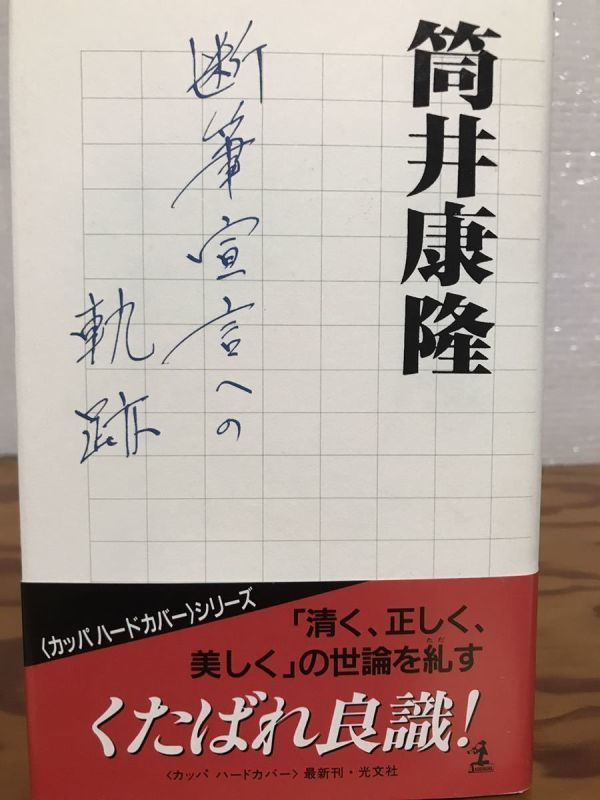 筒井康隆
断筆宣言への
軌跡
〈カッパ ハードカバー〉シリーズ
「清く、正しく、
美しく」の世論を糺す
ただ
くたばれ良識!
〈カッパ ハードカバー〉 最新刊・光文社